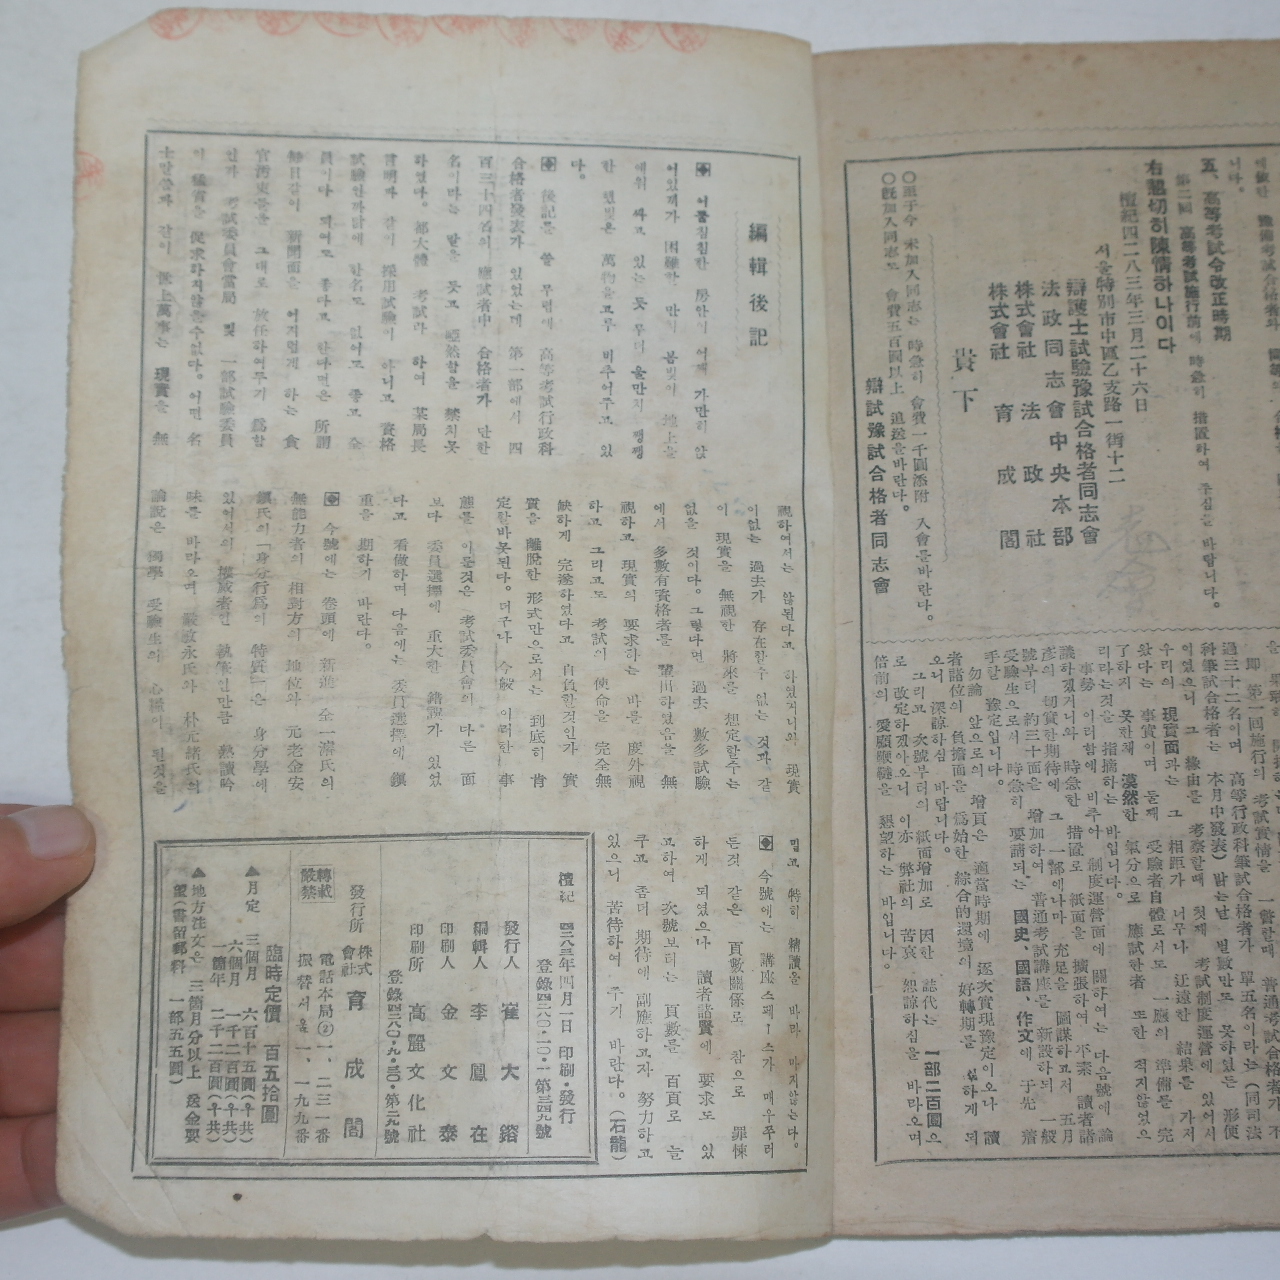 五、高等考試令改正時期
第二回 高等考試施行前에 時急히 措置하여 주심을 바랍니다。
右懇切히 陳情하나이다
檀紀四二八三年三月二十六日
서울特別市中區乙支路一街十二
辯護士試驗豫試合格者同志會
法政同志會中央本部
株式會社 法政社
株式會社 育成閣
貴下
○至于今 未加入同志는 時急히 會費一千圓添附 入會를바란다。
○旣加入同志도 會費五百圓以上 追送을바란다。
辯試豫試合格者同志會
卽 第一回施行의 考試實情을 一瞥할때 普通考試合格者가 不
過三十二名이며 高等行政科筆試合格者가 單五名이라는(同司法
科筆試合格者는 本月中發表) 맑는날 별數만도 못하였든 形便
이였으니 그 緣由를 考察할때 첫째 考試制度運營에 있어서
우리의 現實面과는 그 相距가 너무나 迂遠한 結果를 가저
왔다는 事實이며 둘째 受驗者自體로서도 一應의 準備를 完
了하지 못한체 漠然한 氣分으로 應試한者 또한 적지않었으
리라는것을 指摘하는 바입니다。
事勢 이러함에 비추어 制度運營面에 關하여는 다음號에 論
議하겠거니와 時急한 措置로 紙面을 擴張하여 平素 讀者諸
彦의 切實한期待에 그 一部에나마 充足을 圖謀하고저 五月
號부터 約三十頁을 增加하여 普通考試講座를 新設하되 一般
受驗生으로서 時急히 要請되는 國史、國語、作文에 于先 着
手할 豫定입니다。
勿論 앞으로의 增頁은 適當時期에 逐次實現豫定이오나 讀
者諸位의 負擔面을 爲始한 綜合的還境의 好轉期를 하게 되
오니 深諒하심 바랍니다。
그리고 次號부터의 紙面增加로 因한 誌代는 一部二百圓으
로 改定하겠아오니 이亦 弊社의 苦衷 恕諒하심을 바라오며
倍前의 愛顧鞭撻을 懇望하는 바입니다。
編輯後記
◈ 어둠침침한 房안에 어깨 가만히 앉
어있재가 困難한 만치 봄빛이 地上을
애워 싸고 있는 듯 무더울만치 쨍쨍
한 햇빛은 萬物을고루 비추어주고 있
다。
◈ 後記를 쓸 무렵에 高等考試行政科
合格者發表가 있었는데 第一部에서 四
百三十四名의 應試者中 合格者가 단한
名이라는 말을 듯고 啞然함을 禁치못
하였다。都大體 考試라 하여 某局長
言明과 같이 採用試驗이 아니고 資格
試驗인까닭에 한名도 없어도 좋고 全
員이다 되여도 좋다고 한다면은 所謂
每日같이 新聞面을 어지럽게 하는 貪
官汚吏들을 그대로 放任하여두기 爲함
인가 考試委員會當局 및 一部試驗委員
의 猛省을 促求하지않을수없다。어떤 名
士말슴과 같이 世上萬事는 現實을 無
視하여서는 않된다고 하였거니와 現實
이없는 過去가 存在할수 없는 것과 같
이 現實을 無視한 將來를 想定할수는
없을 것이다。그렇다면 過去 數多試驗
에서 多數有資格者를 輩出하였음을 無
視하고 現實의 要求하는 바를 度外視
하고 그리고도 考試의 使命을 完全無
缺하게 完遂하였다고 自負할것인가 實
質을 離脫한 形式만으로서는 到底히 肯
定할바못된다。더구나 今般 이러한 事
態를 이룬것은 考試委員會의 다른 面
보다 委員選擇에 重大한 錯誤가 있었
다고 看做하며 다음에는 委員選擇에 鎭
重을 期하기 바란다。
◈ 今號에는 卷頭에 新進 全一濂氏의
無能力者의 相對方의 地位와 元老金安
鎭氏의「身分行爲의 特質」은 身分學에
있어서의 權威者인 執筆인만큼 熱讀吟
味를 바라오며 嚴敏永氏와 朴元緖氏의
論說은 國學 受驗生의 心臟이 된것을
믿고 特히 精讀을 바라 마지않는다。
◈ 今號에는 講座스페ー스가 매우쭈러
든것 같은 頁數關係로 참으로 罪悚
하게 되였으나 讀者諸賢에 要求도 있
고하여 次號보터는 頁數를 百頁로 늘
쿠고 좀더 期待에 副應하고자 努力하고
있으니 苦待하여 주기 바란다。(石龍)
檀紀 四二八三年四月一日 印刷・發行
登錄四二八〇・一〇・一 第三四九號
發行人 崔大鎔
編輯人 李鳳在
印刷人 金文泰
印刷所 高麗文化社
登錄四二八〇・九・三〇・第二九號
發行所 株式會社 育成閣
轉載嚴禁
電話本局②一、二三一番
振替서울一、一九九番
臨時定價 百五拾圓
▲月定 三個月 六百十五圓(우共)
六個月 一千二百圓(우共)
一箇年 二千二百圓(우共)
▲地方注文은 三箇月分以上 送金要
望(書留郵料 一部五五圓)